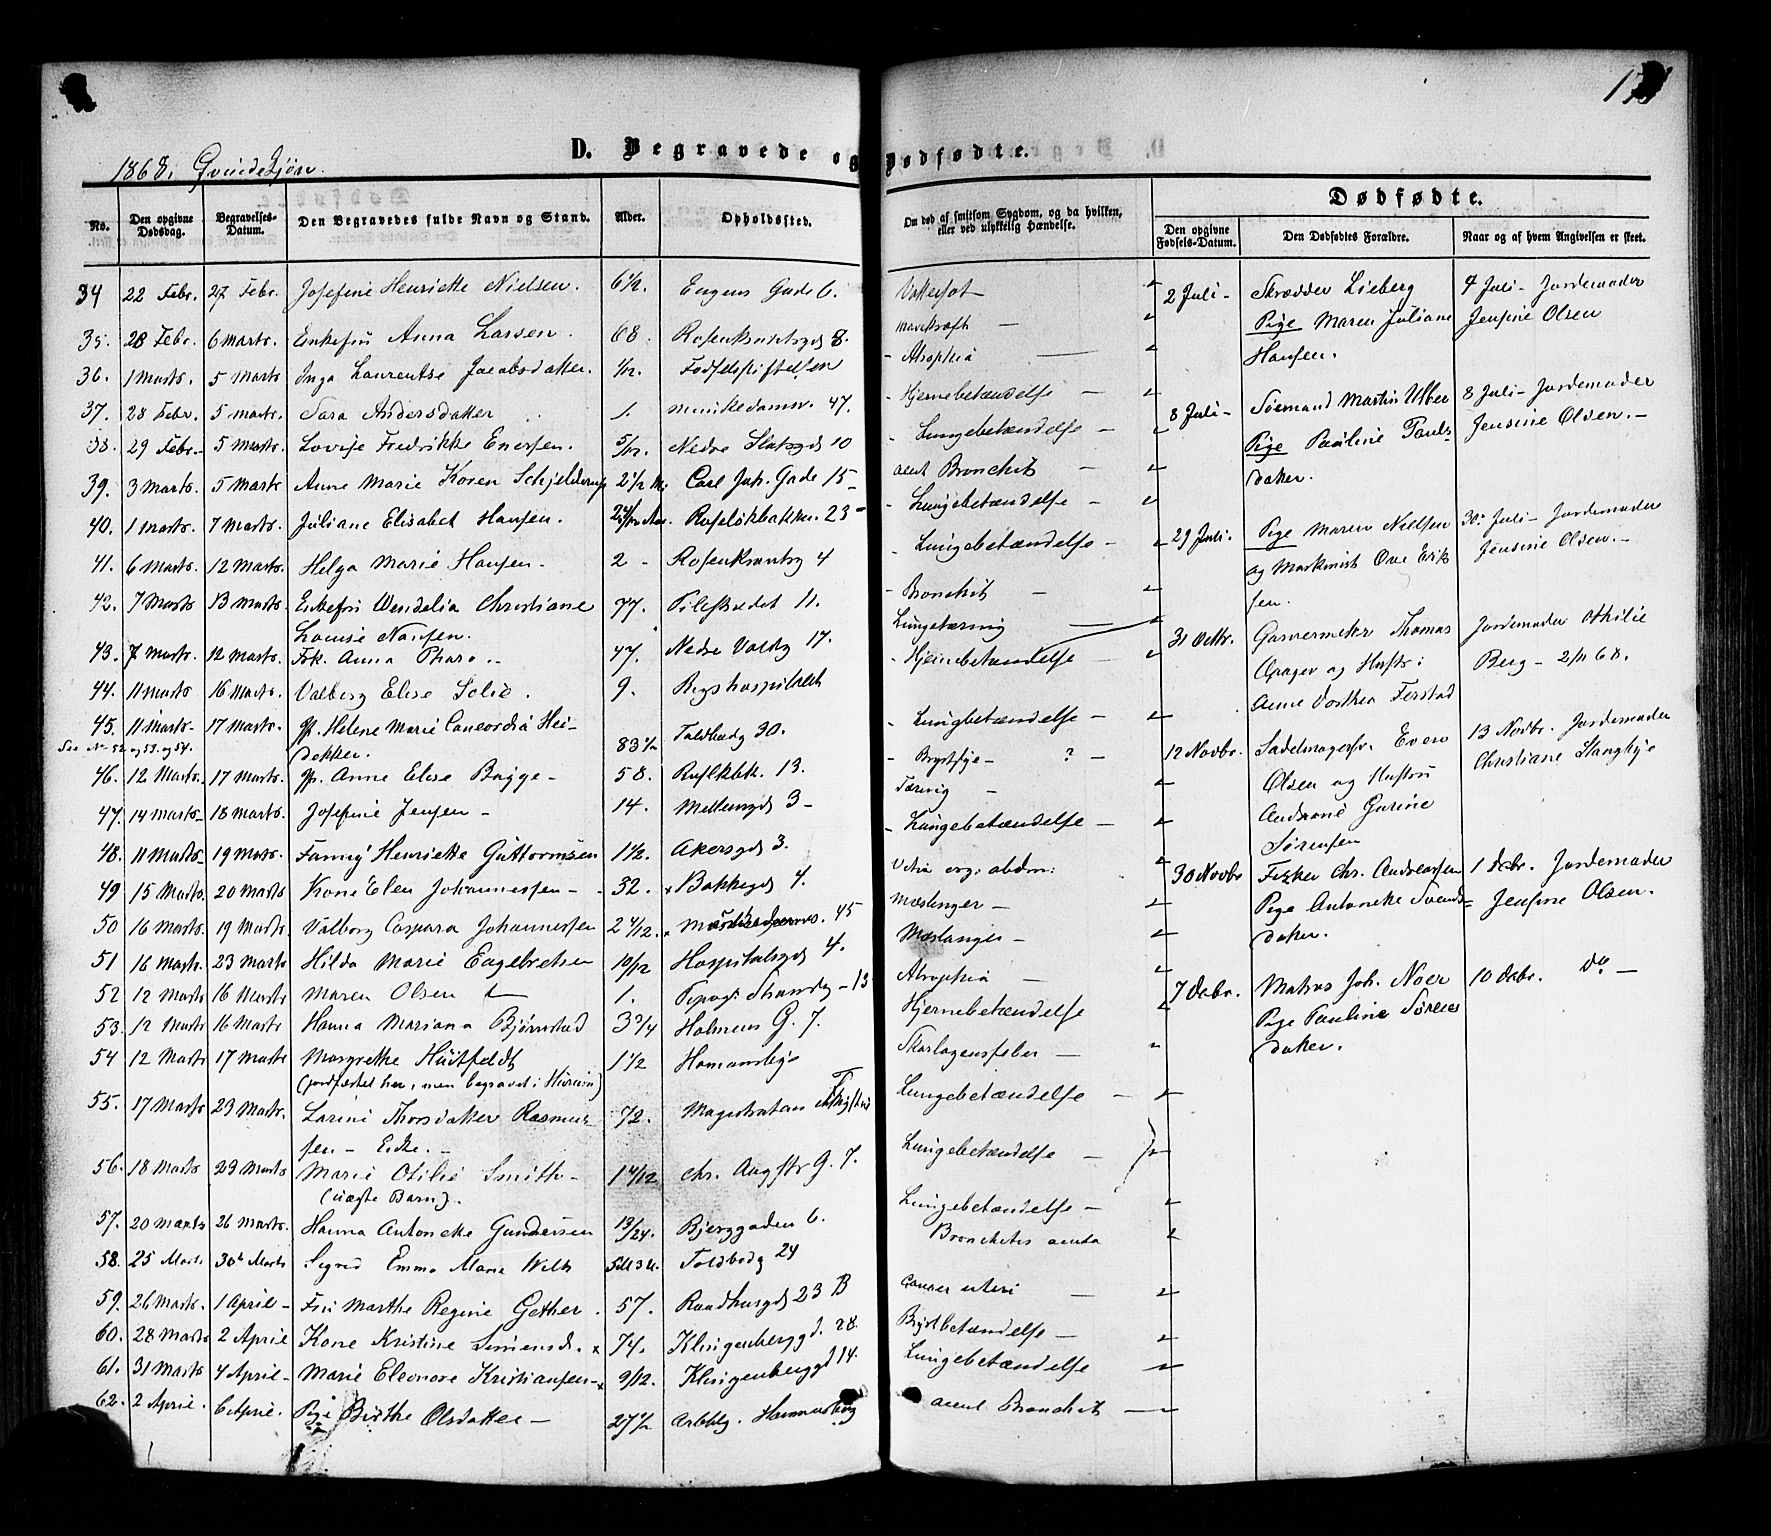 D. Begravede og Dødfødte.
1868. Qvindekjøn.
No.
Den opgivne Dødsdag.
Begravelses-Datum.
Den Begravedes fulde Navn og Stand.
Alder.
Opholdssted.
Om død af smitsom Sygdom, og da hvilken, eller ved ulykkelig Hændelse.
Dødfødte.
Den opgivne Fødsels-Datum.
Den Dødfødtes Forældre.
Naar og af hvem Angivelsen er skeet.
34 22 Febr. 27 Febr. Josefine Henriette Nielsen. 6 1/2 Eugens Gade 6.
35. 28 Febr. 6 Marts. Enkefru Anna Larsen. 68. 8.
36. 1 Marts. 5 Marts Inga Laurentse Jacobsdatter. 1/12. Fødselsstiftelsen
37. 28 Febr. 5 Marts. Sara Andersdatter 1. Munkedamsv. 47.
38. 29 Febr. 5 Marts. Lovise Fredrikke Enersen. 5/12. Nedre Slotsgd 10
39. 3 Marts. 5 Marts Anne Marie Koren Schjelderup 2 1/2 M. Carl Joh. Gade 15
40. 1 Marts. 7 Marts. Juliane Elisabet Hansen. Ruseløkbakken 23
41. 6 Marts. 12 Marts. Helga Marie Hansen. 2 Rosenkrantzg 4
42. 7 Marts 13 Marts. Enkefru Wendelia Christiane 77. Pilestrædet 11.
Louise Nansen.
43. 7 Marts. 12 Marts. Frk. Anna Pharo. 47. Nedre Voldg 17.
44. 11 Marts 16 Marts. Valborg Elise Solie. 9. Rigshospitalet
45. 11 Marts 17 Marts. Helene Marie Concordia Hei-
See No 52 og 53. og 54. dekker. 83 1/2 Toldbodg 30.
46. 12 Marts. 17 Marts. Anne Elise Brygge 58. 13.
47. 14 Marts 18 Marts. Josefine Jensen 14. Mellemgd 3
48. 11 Marts 19 Marts. Fanny Henriette Guttormsen 1 1/2. Akersgd 3.
49 15 Marts. 20 Marts Kone Elen Johannessen 32. Bakkegd 4.
50 16 Marts. 19 Marts. Valborg Caspara Johannessen 2 4/12. 45
51 16 Marts. 23 Marts Hilda Marie Engebretsen 10/12 Hospitalsgd 4.
52 12 Marts 16 Marts. Maren Olsen 1. Strandg 13
53. 12 Marts 16 Marts. Hanna Mariana Bjørnstad 3 3/4 Holmens G. 7.
54 12 Marts 17 Marts Margrethe Huitfeldt 1 1/2 Homansby
(jordfæstet her, men begravet i Hurum)
55. 17 Marts 23 Marts. Larine Thorsdatter Rasmus- 72. Magistratens
sen Enke.
56. 18 Marts 23 Marts Marie Otilie Smith 1 4/12 Chr. Augsts G. 7.
(uægte Barn).
57. 20 Marts 26 Marts. Hanna Antonette Gundersen 13/24. Bjerggaden 6.
58. 25 Marts 30 Marts Sigrid Emma Marie 5 M 3 U. Toldbodg 24
59. 26 Marts. 1 April Fru Marthe Regine Gether 57. Raadhusgd 23 B
60. 28 Marts 2 April Kone Kristine Simensd. 74. Klingenberggd. 28.
61. 31 Marts 4 April Marie Eleonore Kristiansen 9/12. Klingenberggd 14.
62. 2 April. 6 April. Pige Birthe Olsdatter 27 1/2 Arbbg. Hammersborg
Vattersot
Mavekræft
Atrophia
Hjernebetændelse
Lungebetændelse
acut Bronchit
Lungebetændelse
Lungebetændelse
Bronchit
Lungetæring
Hjernebetændelse
Lungebetændelse
Brystsyge ?
Tæring
Lungebetændelse
Vitia org: abdm:
Mæslinger
Mæslinger
Atrophia
Hjernebetændelse
Skarlagensfeber
Lungebetændelse
Lungebetændelse
Lungebetændelse
Bronchitis acuta
Cancer uteri
Brystbetændelse
Lungebetændelse
acut Bronchit
2 Juli Skrædder Lieberg 4 Juli Jordemoder
Pige Maren Juliane Jensine Olsen
Hansen.
8 Juli Sømand Martin 8 Juli Jordemoder
Pige Pauline Pauls- Jensine Olsen.
datter.
29 Juli. Pige Maren Nielsen 30 Juli Jordemoder
og Maskinist Ove Erik Jensine Olsen.
sen.
31 Octbr. Garvermester Thomas Jordemoder Othilie
og Hustr: Berg 2/11 68.
Anne Dorthea
12 Novbr. Sadelmagersv. Even 13 Novbr. Jordemoder
Olsen og Hustru Christiane Stangbye
Gurine
Sørensen
30 Novbr Fisker Chr. Andreassen 1 Decbr. Jordemoder
Pige Antonette Svends- Jensine Olsen.
datter.
7 Decbr. Matros Joh. Noer 10 Decbr. do
Pige Pauline Sørens
datter.